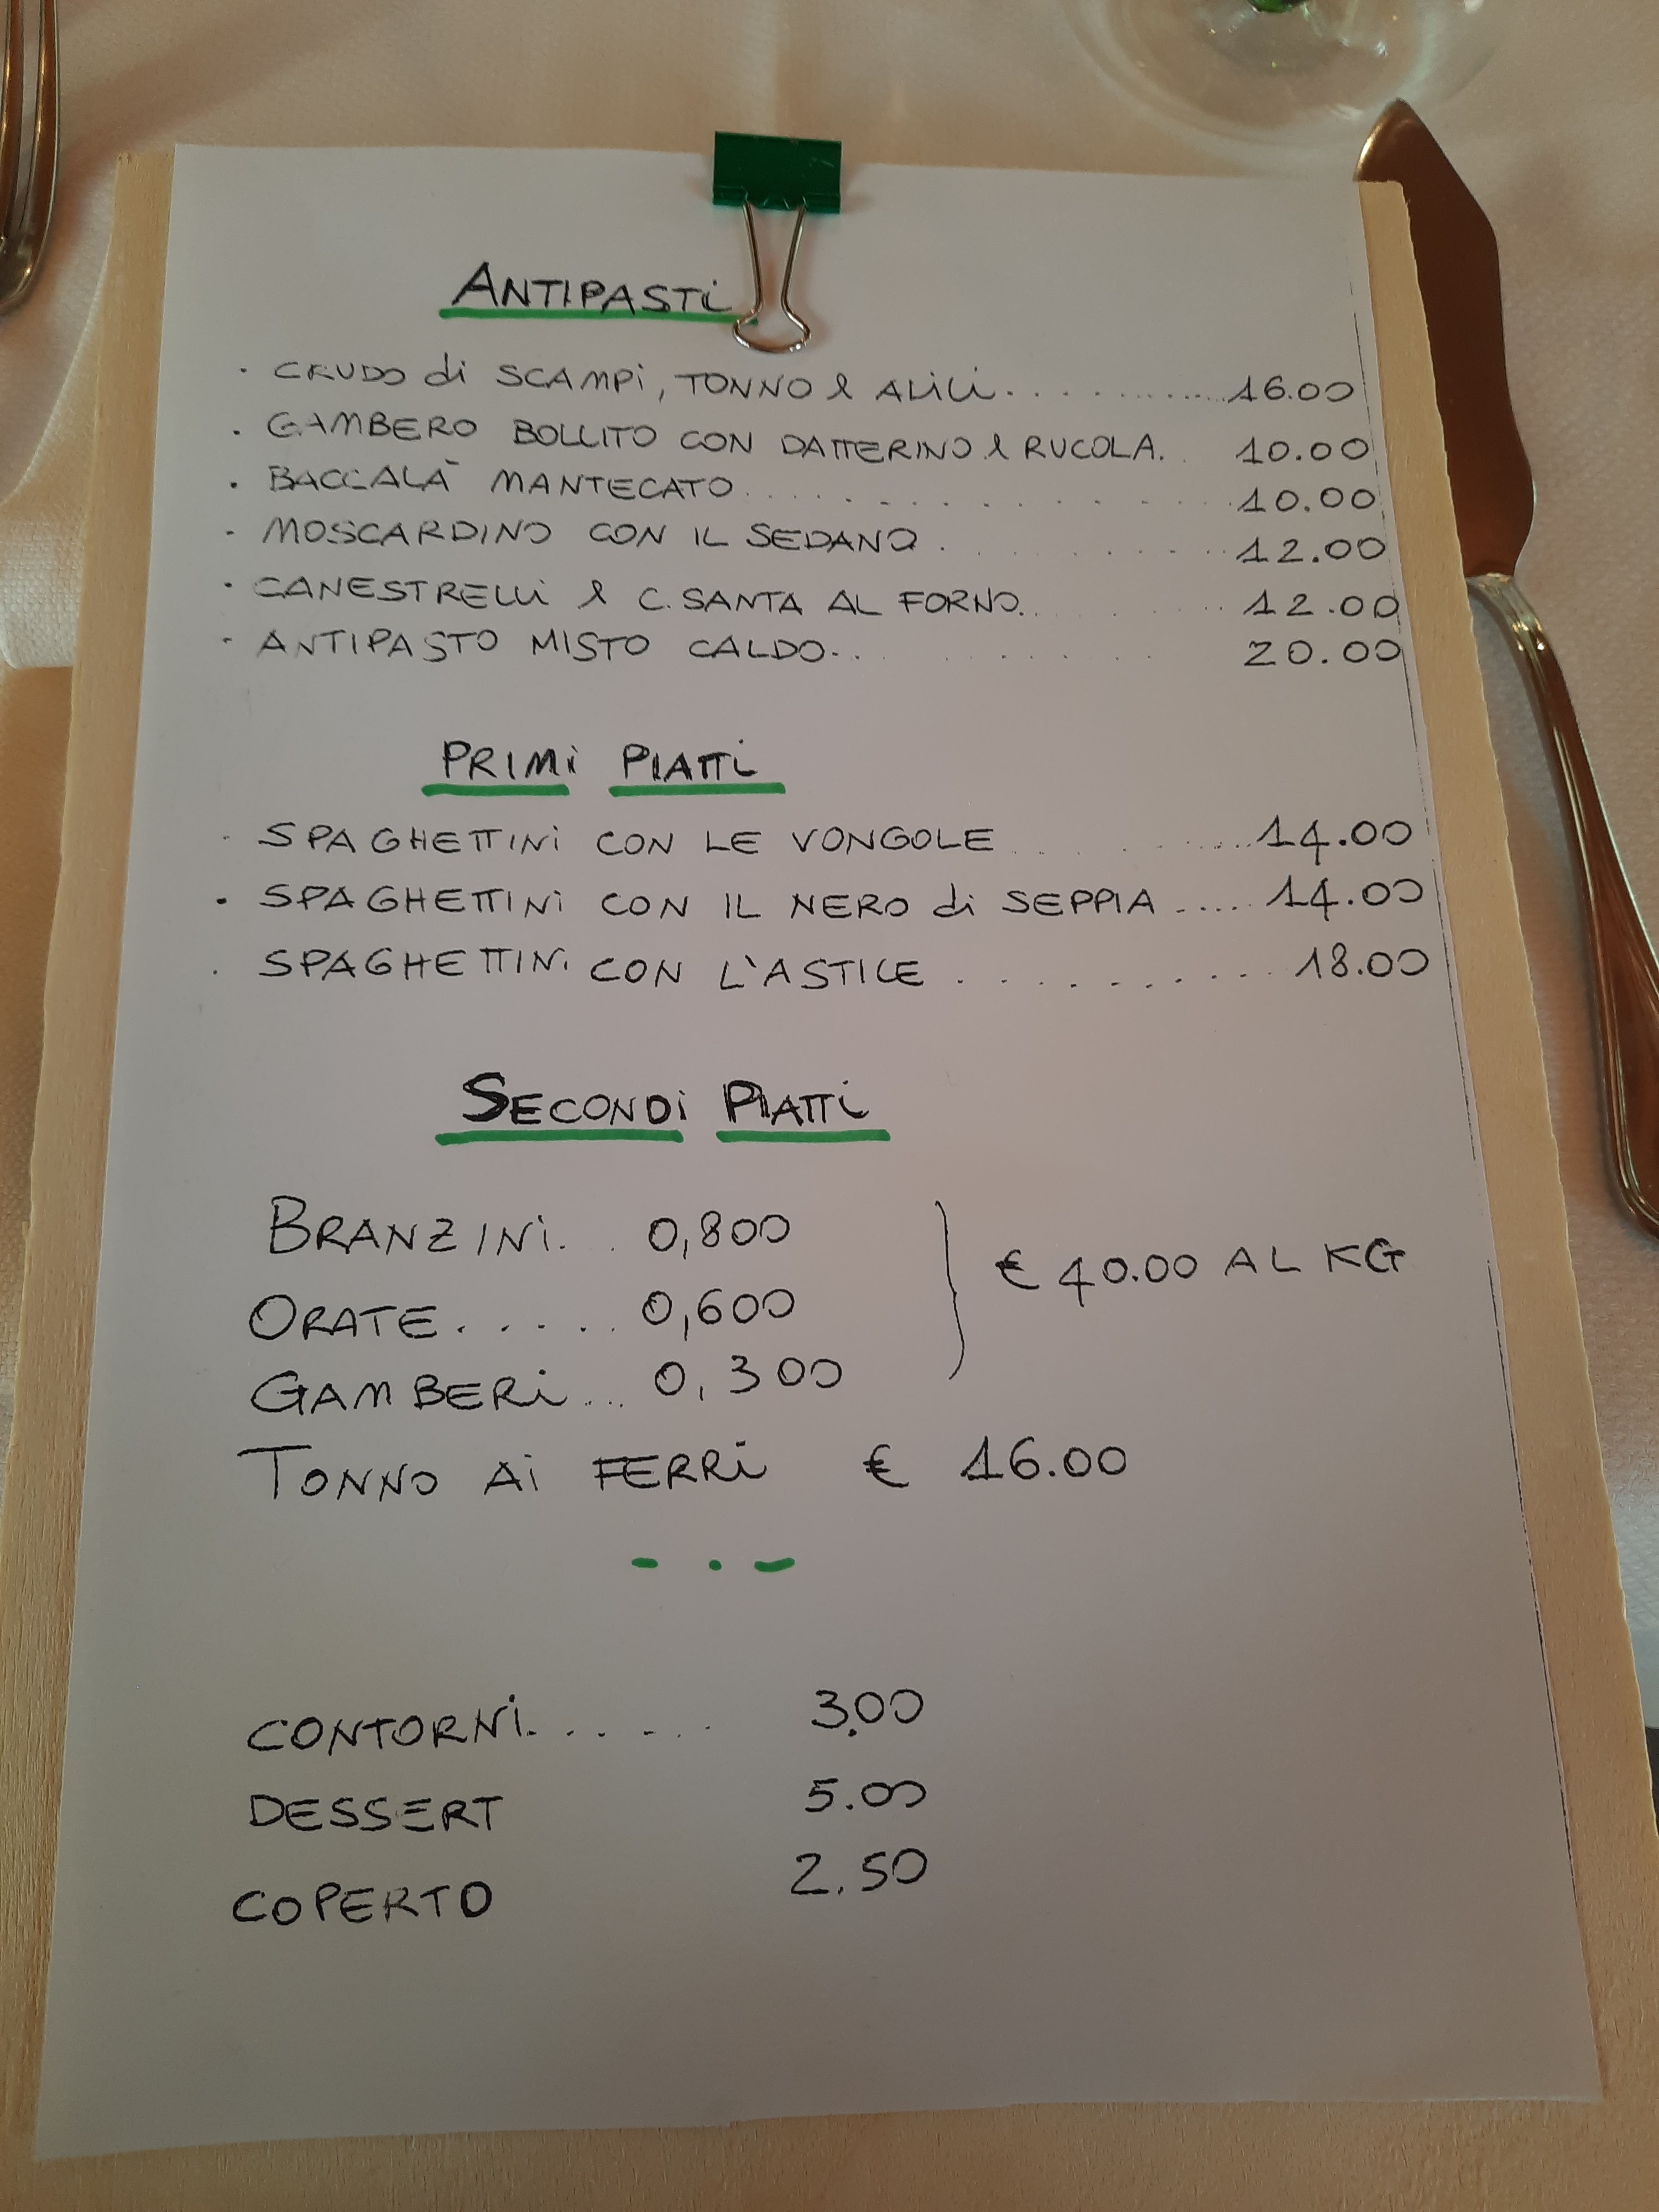 ANTIPASTi
· CRUDO di SCAMPi, TONNO & ALiCi............16.00
· GAMBERO BOLLITO CON DATTERINO & RUCOLA.. 10.00
· BACCALÀ MANTECATO............10.00
· MOSCARDINO CON IL SEDANO.........12.00
· CANESTRELLi & C. SANTA AL FORNO......12.00
· ANTIPASTO MISTO CALDO......... 20.00
PRIMi PIATTi
· SPAGHETTINi CON LE VONGOLE........14.00
· SPAGHETTINi CON IL NERO di SEPPIA.....14.00
· SPAGHETTINi CON L'ASTICE..........18.00
SECONDi PIATTi
BRANZINi... 0,800
€ 40.00 AL KG
ORATE...... 0,600
GAMBERi... 0,300
TONNO Ai FERRi € 16.00
- . -
CONTORNi..... 3.00
DESSERT 5.00
COPERTO 2.50